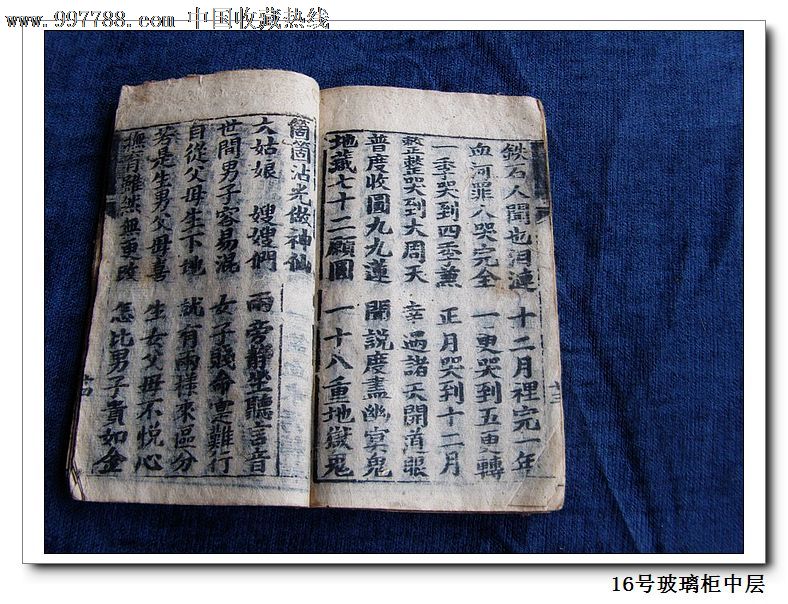 www.997788.com 中国收藏热线
鉄石人聞也泪漣 十二月裡完一年
血河罪八哭完全 一更哭到五更轉
一季哭到四季薫 正月哭到十二月
整整哭到大周天 幸遇諸天開道眼
普度收圓九九蓮 開説度盡幽冥鬼
地藏七十二願圓 一十八重地獄鬼
箇箇沾光做神仙
大姑娘 嫂嫂們 兩旁静坐聽言音
世間男子容易混 女子賤命更難行
自從父母生下地 就有兩樣來區分
若是生男父母喜 生女父母不悦心
撫育雖然無更 怎比男子貴如金
16号玻璃柜中层